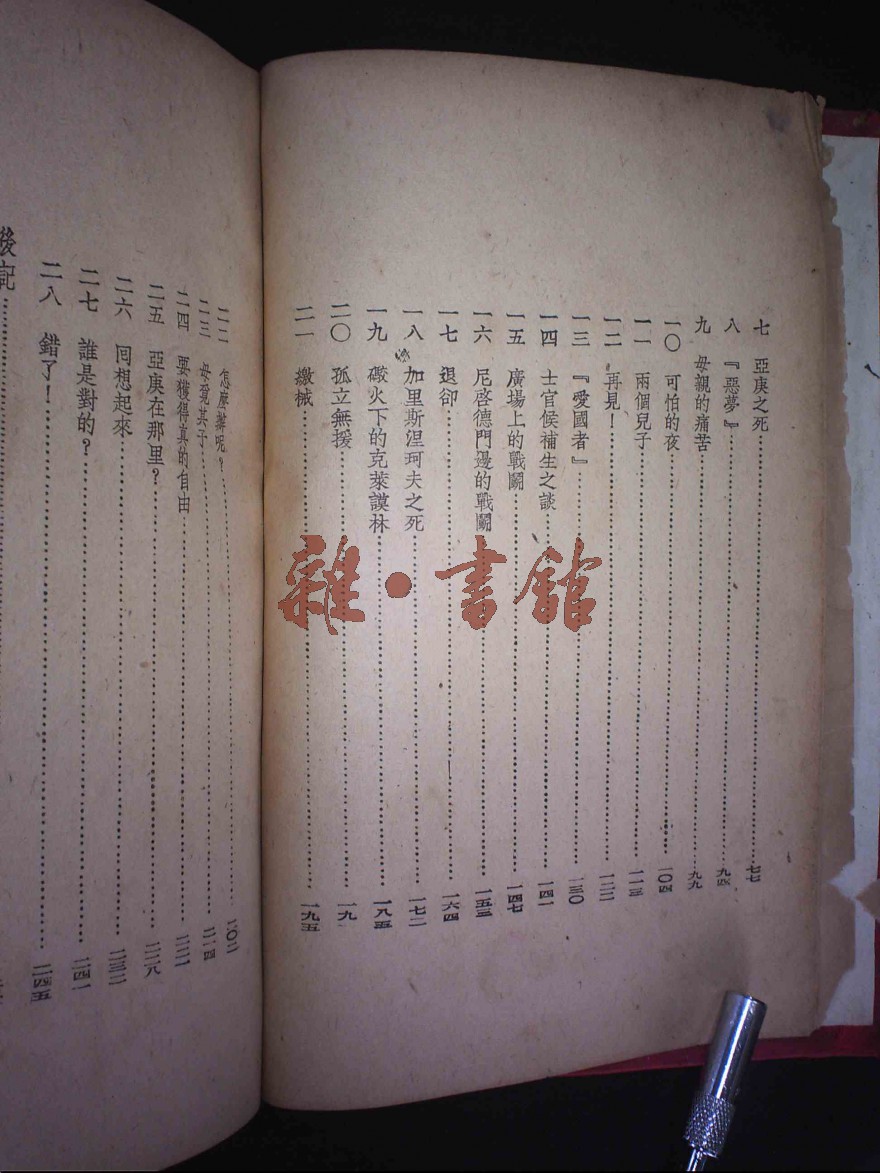 七　亞庚之死…………七七
八　『惡夢』…………九四
九　母親的痛苦…………九九
一〇　可怕的夜…………一〇四
一一　兩個兒子…………一一三
一二　再見！…………一二二
一三　『愛國者』…………一三〇
一四　士官候補生之談…………一四一
一五　廣場上的戰鬭…………一四七
一六　尼啓德門邊的戰鬭…………一五三
一七　退卻…………一六四
一八　加里斯涅珂夫之死…………一七二
一九　礮火下的克萊謨林…………一八五
二〇　孤立無援…………一九
二一　繳械…………一九五
二二　怎麽辦呢？…………二〇二
二三　母覓其子…………二一四
二四　要獲得真的自由…………二二二
二五　亞庚在那里？…………二二八
二六　囘想起來…………二三二
二七　誰是對的？…………二四一
二八　錯了！…………二四五
後記…………
雜·書館